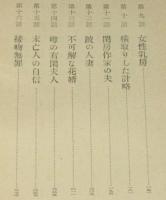 第九話 女性乳房
第十話 横取りした計略
第十一話 閨房作家の夫
第十二話 蹠の人妻
第十三話 不可解な花婿
第十四話 噂の有閑夫人
第十五話 未亡人の自信
第十六話 接吻無罪